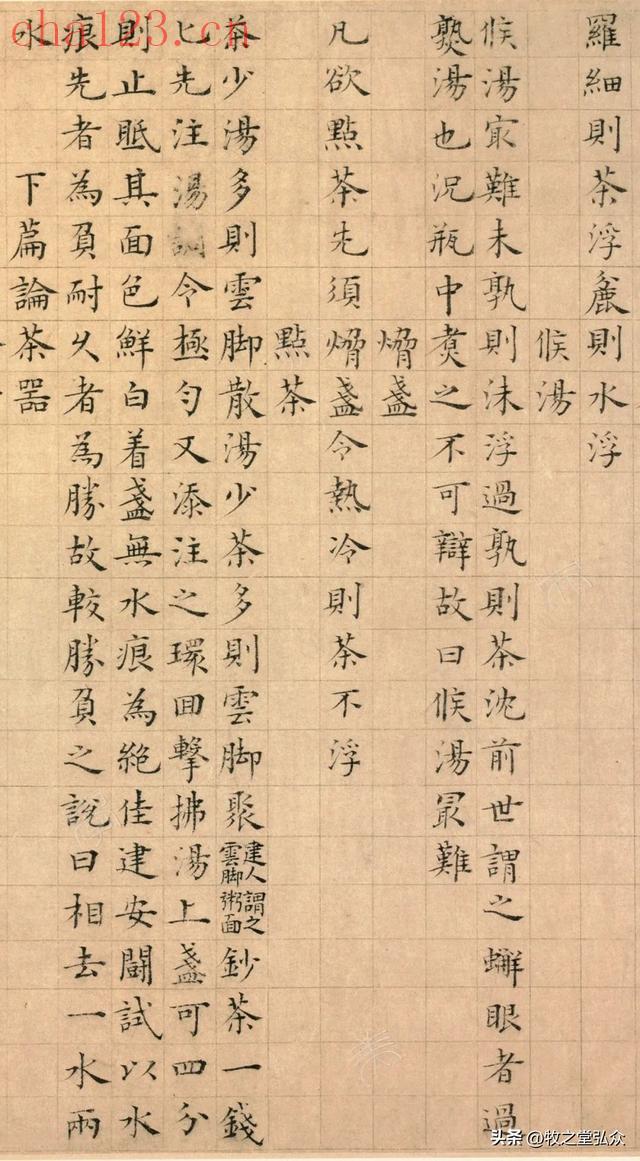 羅細則茶浮麄則水浮
候湯
候湯㝡難未孰則沫浮過孰則茶沈前世謂之蠏眼者過
熟湯也況瓶中煑之不可辯故曰候湯㝡難
熁盞
凡欲點茶先須熁盞令熱冷則茶不浮
點茶
茶少湯多則雲脚散湯少茶多則雲脚聚建人謂之雲脚粥面鈔茶一錢
匕先注湯調令極勻又添注之環回擊拂湯上盞可四分
則止眡其面色鮮白着盞無水痕為絕佳建安鬭試以水
痕先者為負耐久者為勝故較勝負之說曰相去一水兩
水
下篇論茶器
cha123.cn
头条 @牧之堂弘众